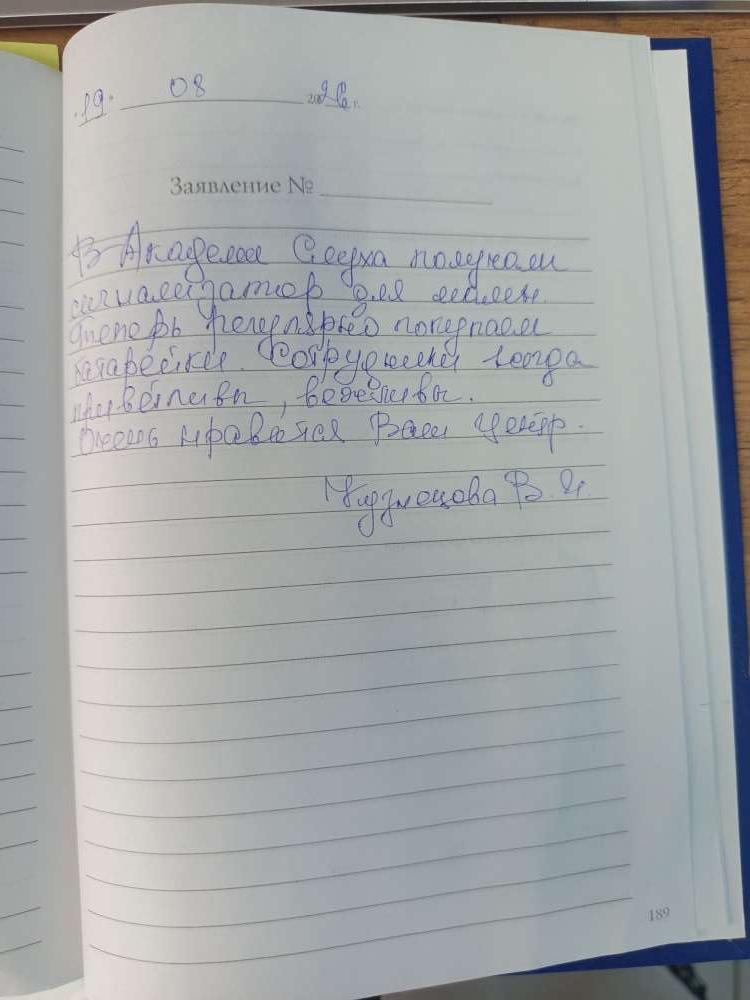 19. 08 2026 г.
Заявление №
В Академии Слуха получали
сигнализатор для мамы.
Теперь регулярно покупаем
батарейки. Сотрудники всегда
приветливы, вежливы.
Очень нравится Ваш Центр.
В. И.
189